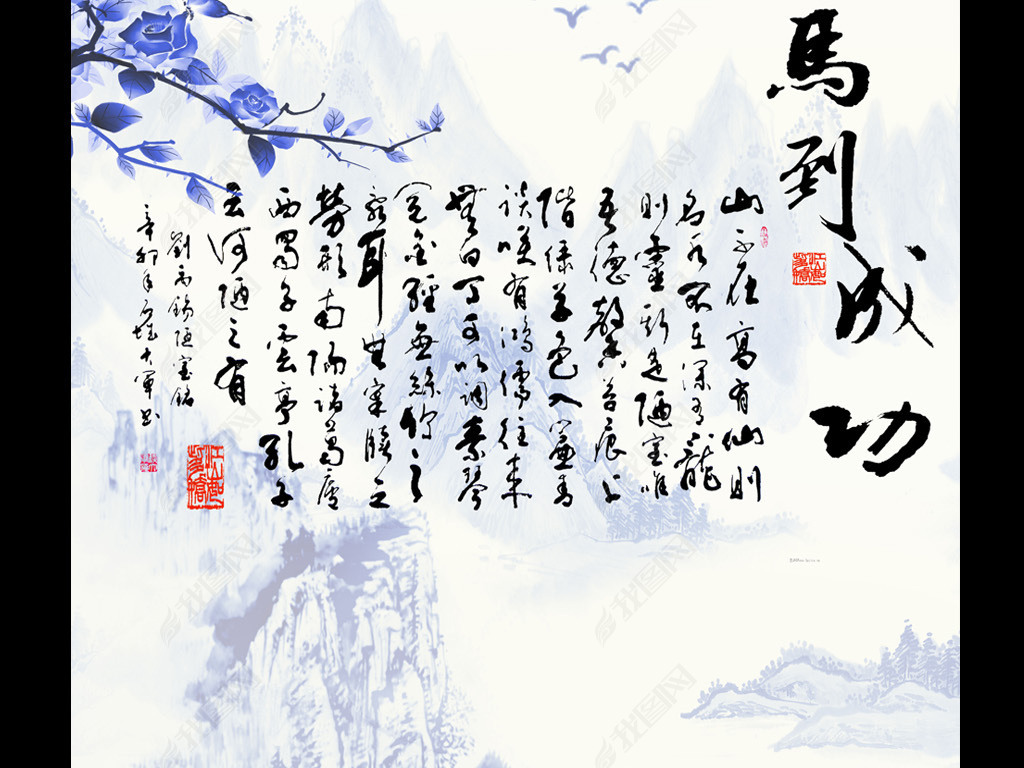 馬到成功
山不在高有仙則
名水不在深有龍
則靈斯是陋室唯
吾德馨苔痕上
階綠草色入簾青
談笑有鴻儒往來
無白丁可以調素琴
閱金經無絲竹之
亂耳無案牘之
勞形南陽諸葛廬
西蜀子雲亭孔子
云何陋之有
劉禹錫陋室銘
辛卯年大軍書